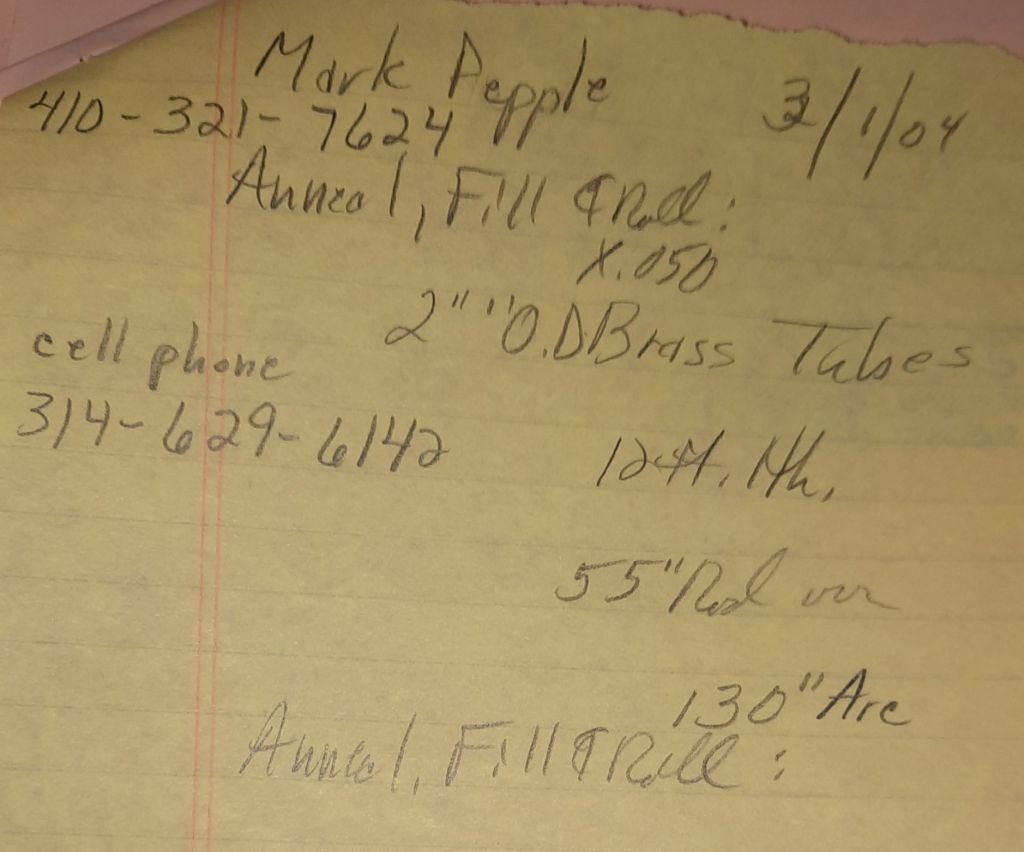 Mark Pepple
3/1/04
410-321-7624
Anneal, Fill & Roll:
X.050
2" "O.D Brass Tubes
cell phone
314-629-6142
12 ft. lth.
55" Rad
130" Arc
Anneal, Fill & Roll: